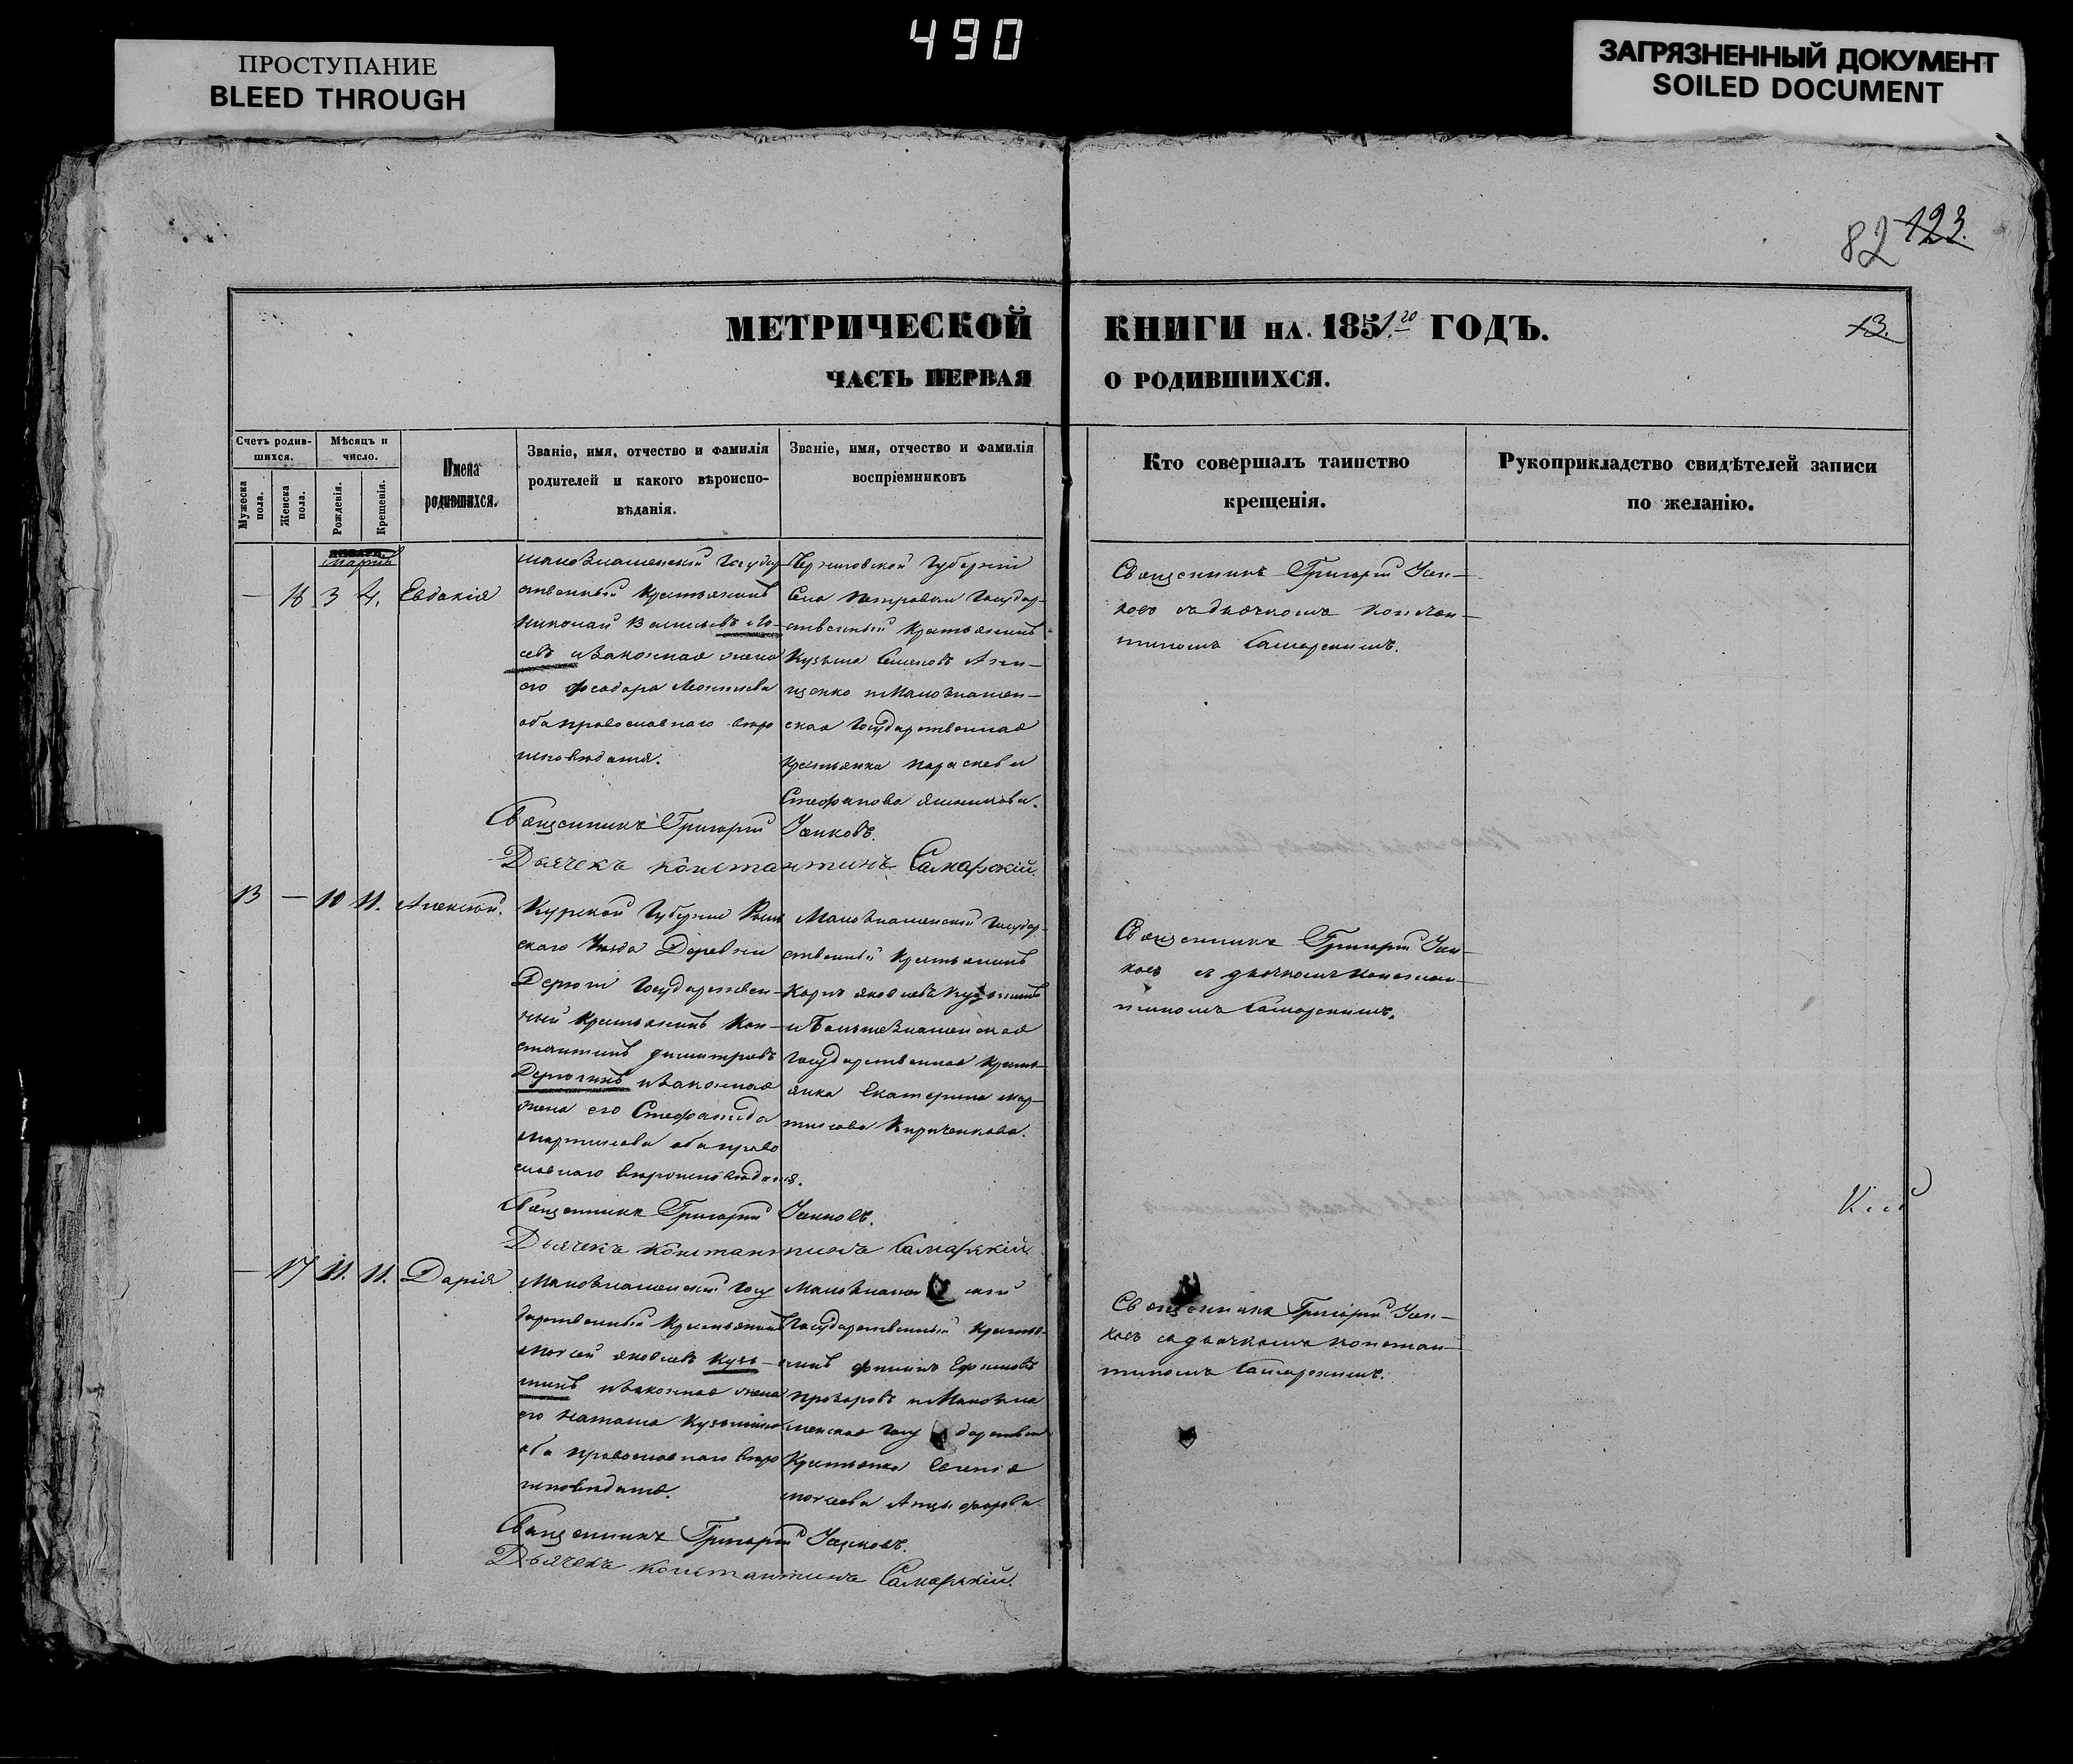 490
ПРОСТУПАНИЕ
BLEED THROUGH
ЗАГРЯЗНЕННЫЙ ДОКУМЕНТ
SOILED DOCUMENT
82 123.
МЕТРИЧЕСКОЙ КНИГИ НА 1851.го ГОДЪ.
13.
ЧАСТЬ ПЕРВАЯ О РОДИВШИХСЯ.
Счетъ родив-
шихся.
Мужеска пола.
Женска пола.
Мѣсяцъ и
число.
Рожденія.
Крещенія.
Имена
родившихся.
Званіе, имя, отчество и фамилія
родителей и какого вѣроиспо-
вѣданія.
Званіе, имя, отчество и фамилія
воспріемниковъ
Кто совершалъ таинство
крещенія.
Рукоприкладство свидѣтелей записи
по желанію.
Мартъ
— 16 3 4. Евдокія
Малознаменскій Государ
ственный Крестьянинъ
Николай Васильевъ
и законная жена
его Феодора Леонтиева
оба православнаго веро
исповедания.
Черниговской Губерніи
Села Петровки Государ-
ственный Крестьянинъ
Кузьма Семеновъ
и Малознамен-
ская Государственная
Крестьянка Параскева
Стефанова
Священникъ Григорій
съ дьячкомъ Констан-
тиномъ Самарскимъ.
Священникъ Григорій
Дьячекъ Константинъ Самарскій.
13 — 10 11. Алексей.
Курской Губерніи
скаго Уезда Деревни
Дерюги Государствен-
ный Крестьянинъ Кон-
стантинъ Димитровъ
Дерюгинъ и законная
жена его Стефанида
Мартинова оба право
славнаго вероисповедания.
Малознаменскій Государ-
ственный Крестьянинъ
Карпъ Яковлевъ
и Большезнаменская
Государственная Кресть-
янка Екатерина Мар-
тинова Кириченкова.
Священникъ Григорій
съ дьячкомъ Констан-
тиномъ Самарскимъ.
Священникъ Григорій
Дьячекъ Константинъ Самарскій.
— 17 11. 11. Дарія
Малознаменскій Госу
дарственный Крестьянинъ
Моисей Яковлевъ Кузь-
минъ и законная жена
его Наталія Кузьмина
оба православнаго веро
исповедания.
Малознаменскій
Государственный Кресть-
янинъ Филипъ Ефимовъ
Прозаровъ и Малозна
менская Государствен
Крестьянка Евгенія
Моисеева Анцыфорова
Священникъ Григорій
съ дьячкомъ Констан-
тиномъ Самарскимъ.
Священникъ Григорій
Дьячекъ Константинъ Самарскій.